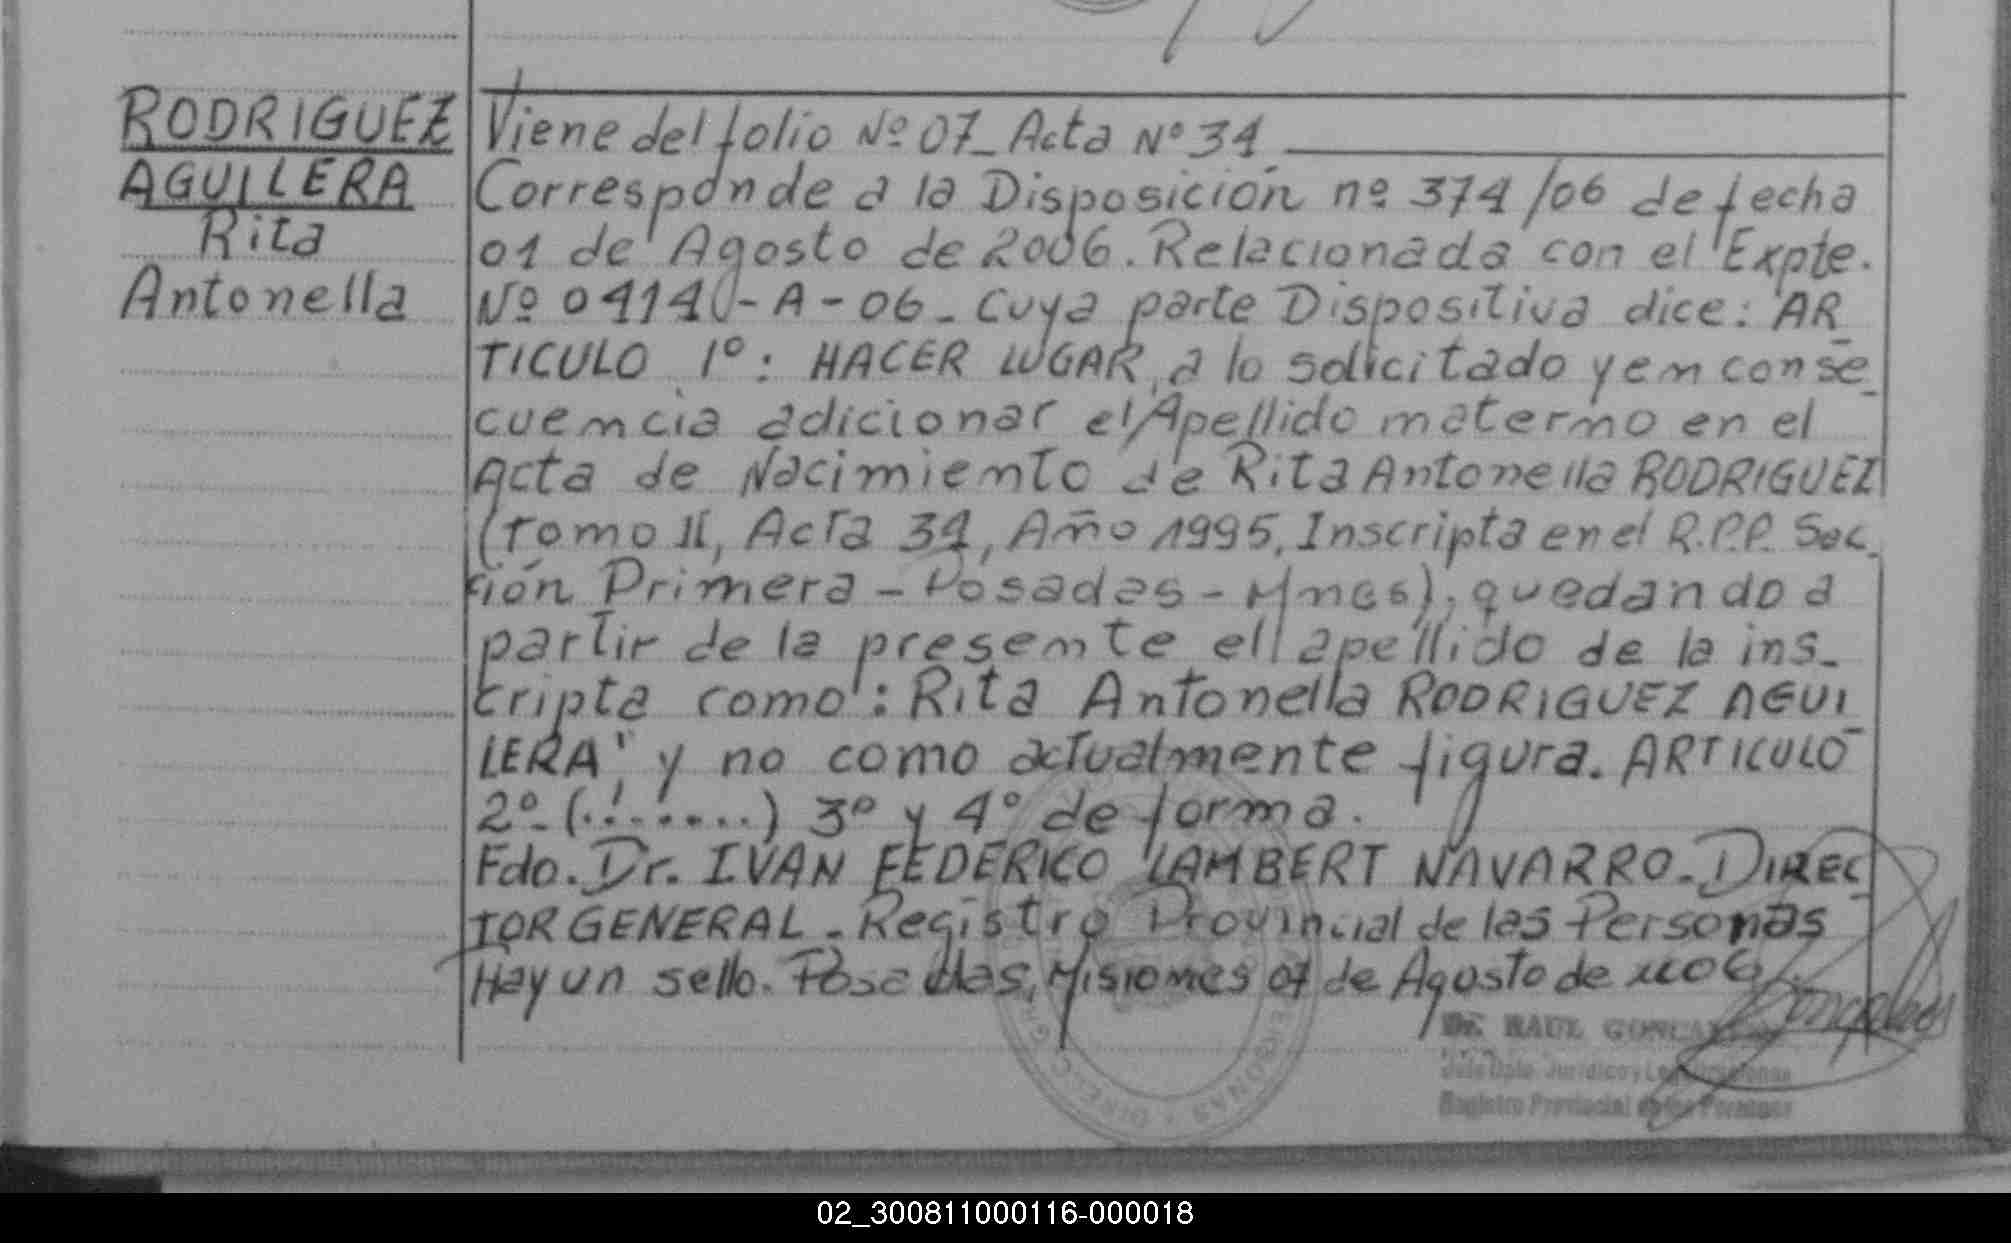 RODRIGUEZ
AGUILERA
Rita
Antonella
Viene del folio Nº 07_ Acta Nº 34
Corresponde a la Disposición nº 374/06 de fecha
01 de Agosto de 2006. Relacionada con el Expte.
Nº 04140-A-06_ Cuya parte Dispositiva dice: "AR_
TICULO 1º: HACER LUGAR, a lo solicitado y en conse_
cuencia adicionar el Apellido materno en el
Acta de Nacimiento de Rita Antonella RODRIGUEZ
(Tomo II, Acta 34, Año 1995, Inscripta en el R.P.P. Sec_
ción Primera - Posadas - Mnes), quedando a
partir de la presente el apellido de la ins_
cripta como: Rita Antonella RODRIGUEZ AGUI_
LERA", y no como actualmente figura. ARTICULO
2º_ (........) 3º y 4º de forma.
Fdo. Dr. IVAN FEDERICO LAMBERT NAVARRO_ DIREC_
TOR GENERAL_ Registro Provincial de las Personas
Hay un sello. Posadas, Misiones 07 de Agosto de 2006
Dr. RAUL
Jefe Dpto. Juridico y
Registro Provincial de las Personas
02_300811000116-000018